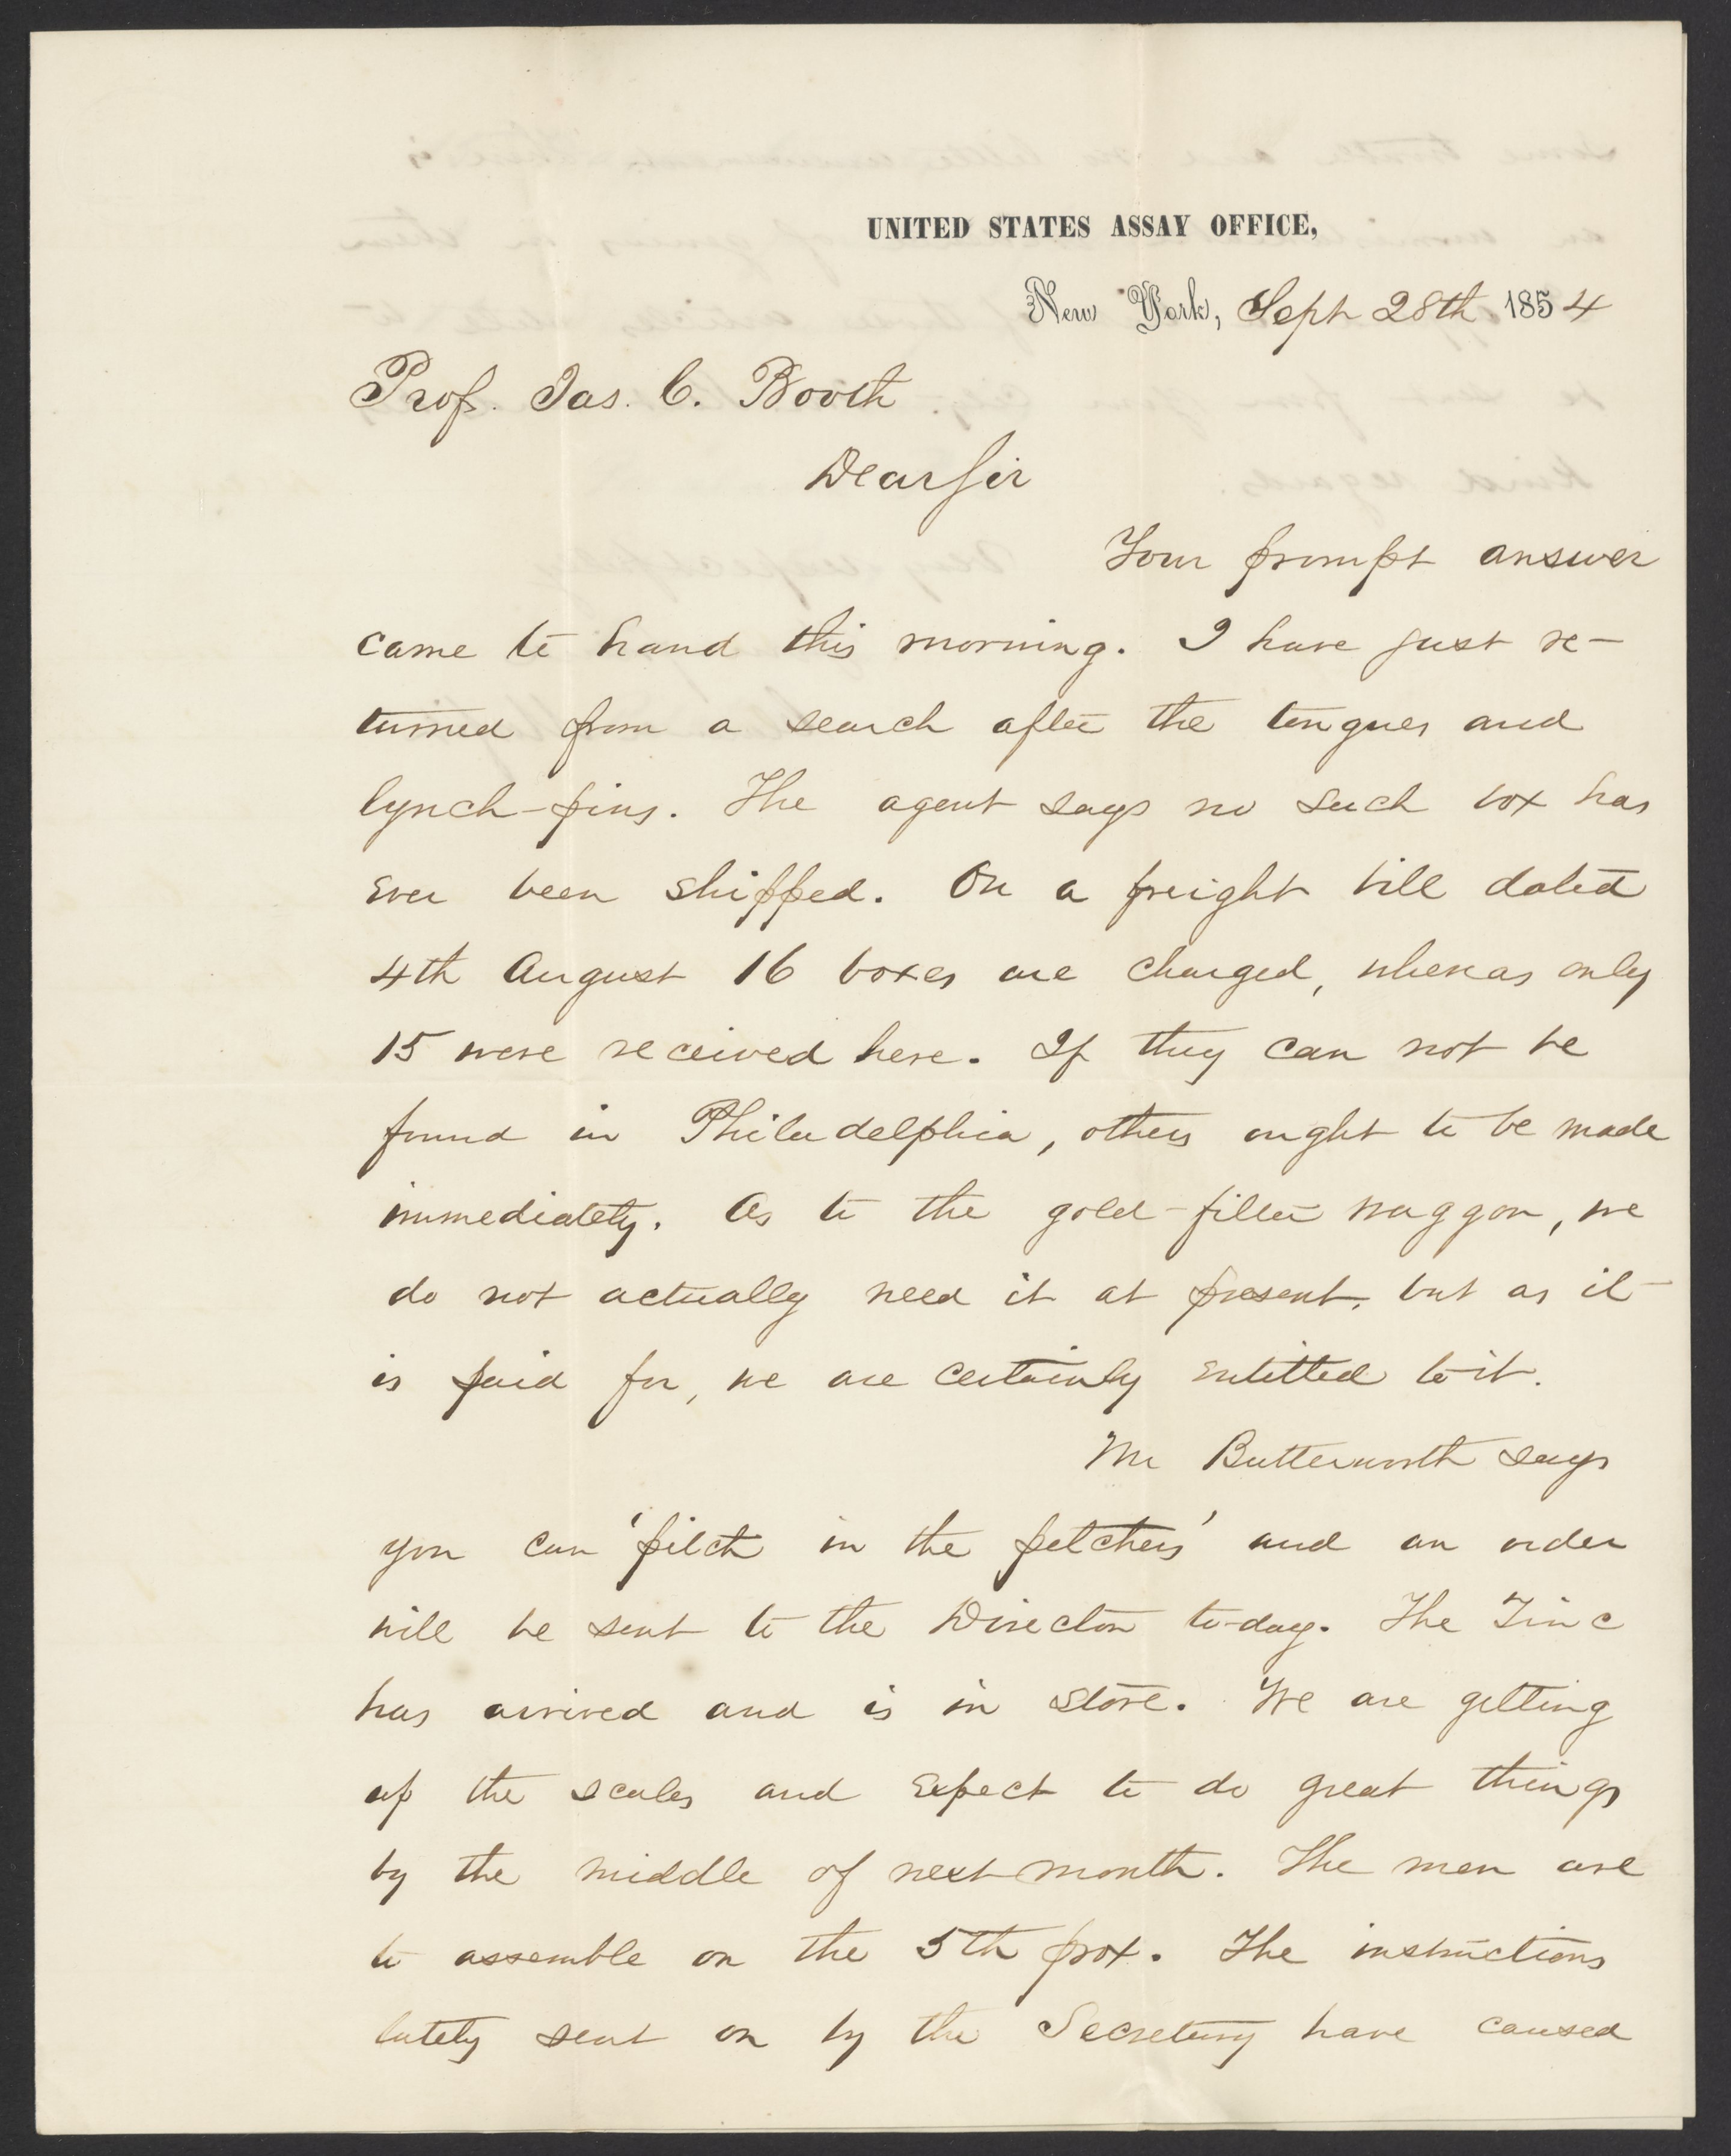 UNITED STATES ASSAY OFFICE,
New York, Sept 28th 1854
Prof. Jas. C. Booth
Dear Sir
Your prompt answer
came to hand this morning. I have just re-
turned from a search after the tongues and
lynch-pins. The agent says no such box has
ever been shipped. On a freight bill dated
4th August 16 boxes are charged, whereas only
15 were received here. If they can not be
found in Philadelphia, others ought to be made
immediately. As to the gold-filter waggon, we
do not actually need it at present, but as it
is paid for, we are certainly entitled to it.
Mr Butterworth says
you can 'pitch in the pitchers' and an order
will be sent to the Director to-day. The Zinc
has arrived and is in store. We are getting
up the scales and expect to do great things
by the middle of next month. The men are
to assemble on the 5th prox. The instructions
lately sent on by the Secretary have caused